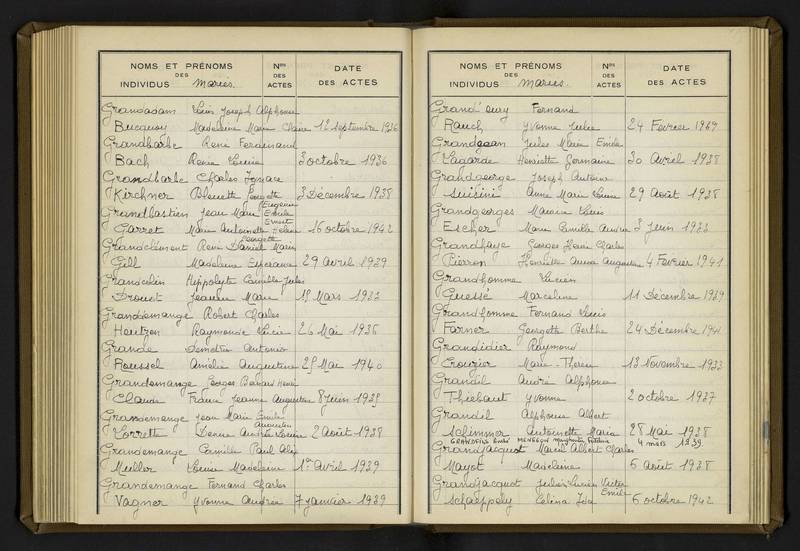 NOMS ET PRÉNOMS
DES
INDIVIDUS Mariés.
Nos
DES
ACTES
DATE
DES ACTES
Grandadam Louis Joseph Alphonse
Bucquoy Madeleine Marie Claire 12 Septembre 1936
Grandbarbe René Ferdinand
Bach Renée Lucie 3 octobre 1936
Grandbarbe Charles Ignace
Kirchner Bluette Georgette 3 Décembre 1938
Eugénie
Grandbastien Jean Marie Emile
Ernest
Garret Marie Antoinette Hélène 16 octobre 1942
Georgette
Grandclément René Daniel Marie
Gill Madeleine 29 Avril 1939
Grandcolin Hippolyte Camille Jules
Drouet Jeanne Marie Mars 1933
Granddemange Robert Charles
Hautzen Raymonde Lucie 26 Mai 1936
Grande Antonio
Roussel Amélie Augustine 25 Mai 1940
Grandemange Georges Bernard Henri
Claude Jeanne Augustine 8 juin 1935
Grandemange Jean Marie Emile
Augustin
Denise Andrée Louise 2 Août 1938
Grandemange Camille Paul
Muller Louise Madeleine 1er Avril 1939
Grandemange Fernand Charles
Vagner Yvonne Andrée 7 janvier 1939
NOMS ET PRÉNOMS
DES
INDIVIDUS Mariés.
Nos
DES
ACTES
DATE
DES ACTES
Grand'eury Fernand
Rauch Yvonne 24 Février 1939
Grandjean Jules Marie Emile
Lagarde Henriette Germaine 30 Avril 1938
Grandgeorge Joseph Antoine
Susini Anne Marie 29 Août 1938
Grandgeorges Maurice Louis
Escher Marie Camille Andrée 3 juin 1933
Grandhaye Georges Henri Charles
Pierron Henriette Anna Augustine 4 Février 1941
Grandhomme Lucien
Guessé Marceline 11 Décembre 1939
Grandhomme Fernand Louis
Farner Georgette Berthe 24 Décembre 1941
Grandidier Raymond
Crouzier Marie-Thérèse 18 Novembre 1933
Grandil André Alphonse
Thiebaut Yvonne 2 octobre 1937
Grandil Alphonse Albert
Schimmer Antoinette Marie 28 Mai 1938
GRANDFILS MENGEON Marguerite 4 mars 1939.
Grandjacquot Marcel Albert Charles
Mayot Madeleine 6 Août 1938
Grandjacquot Julien Lucien Victor
Emile
Schaeppely Célina 6 octobre 1942